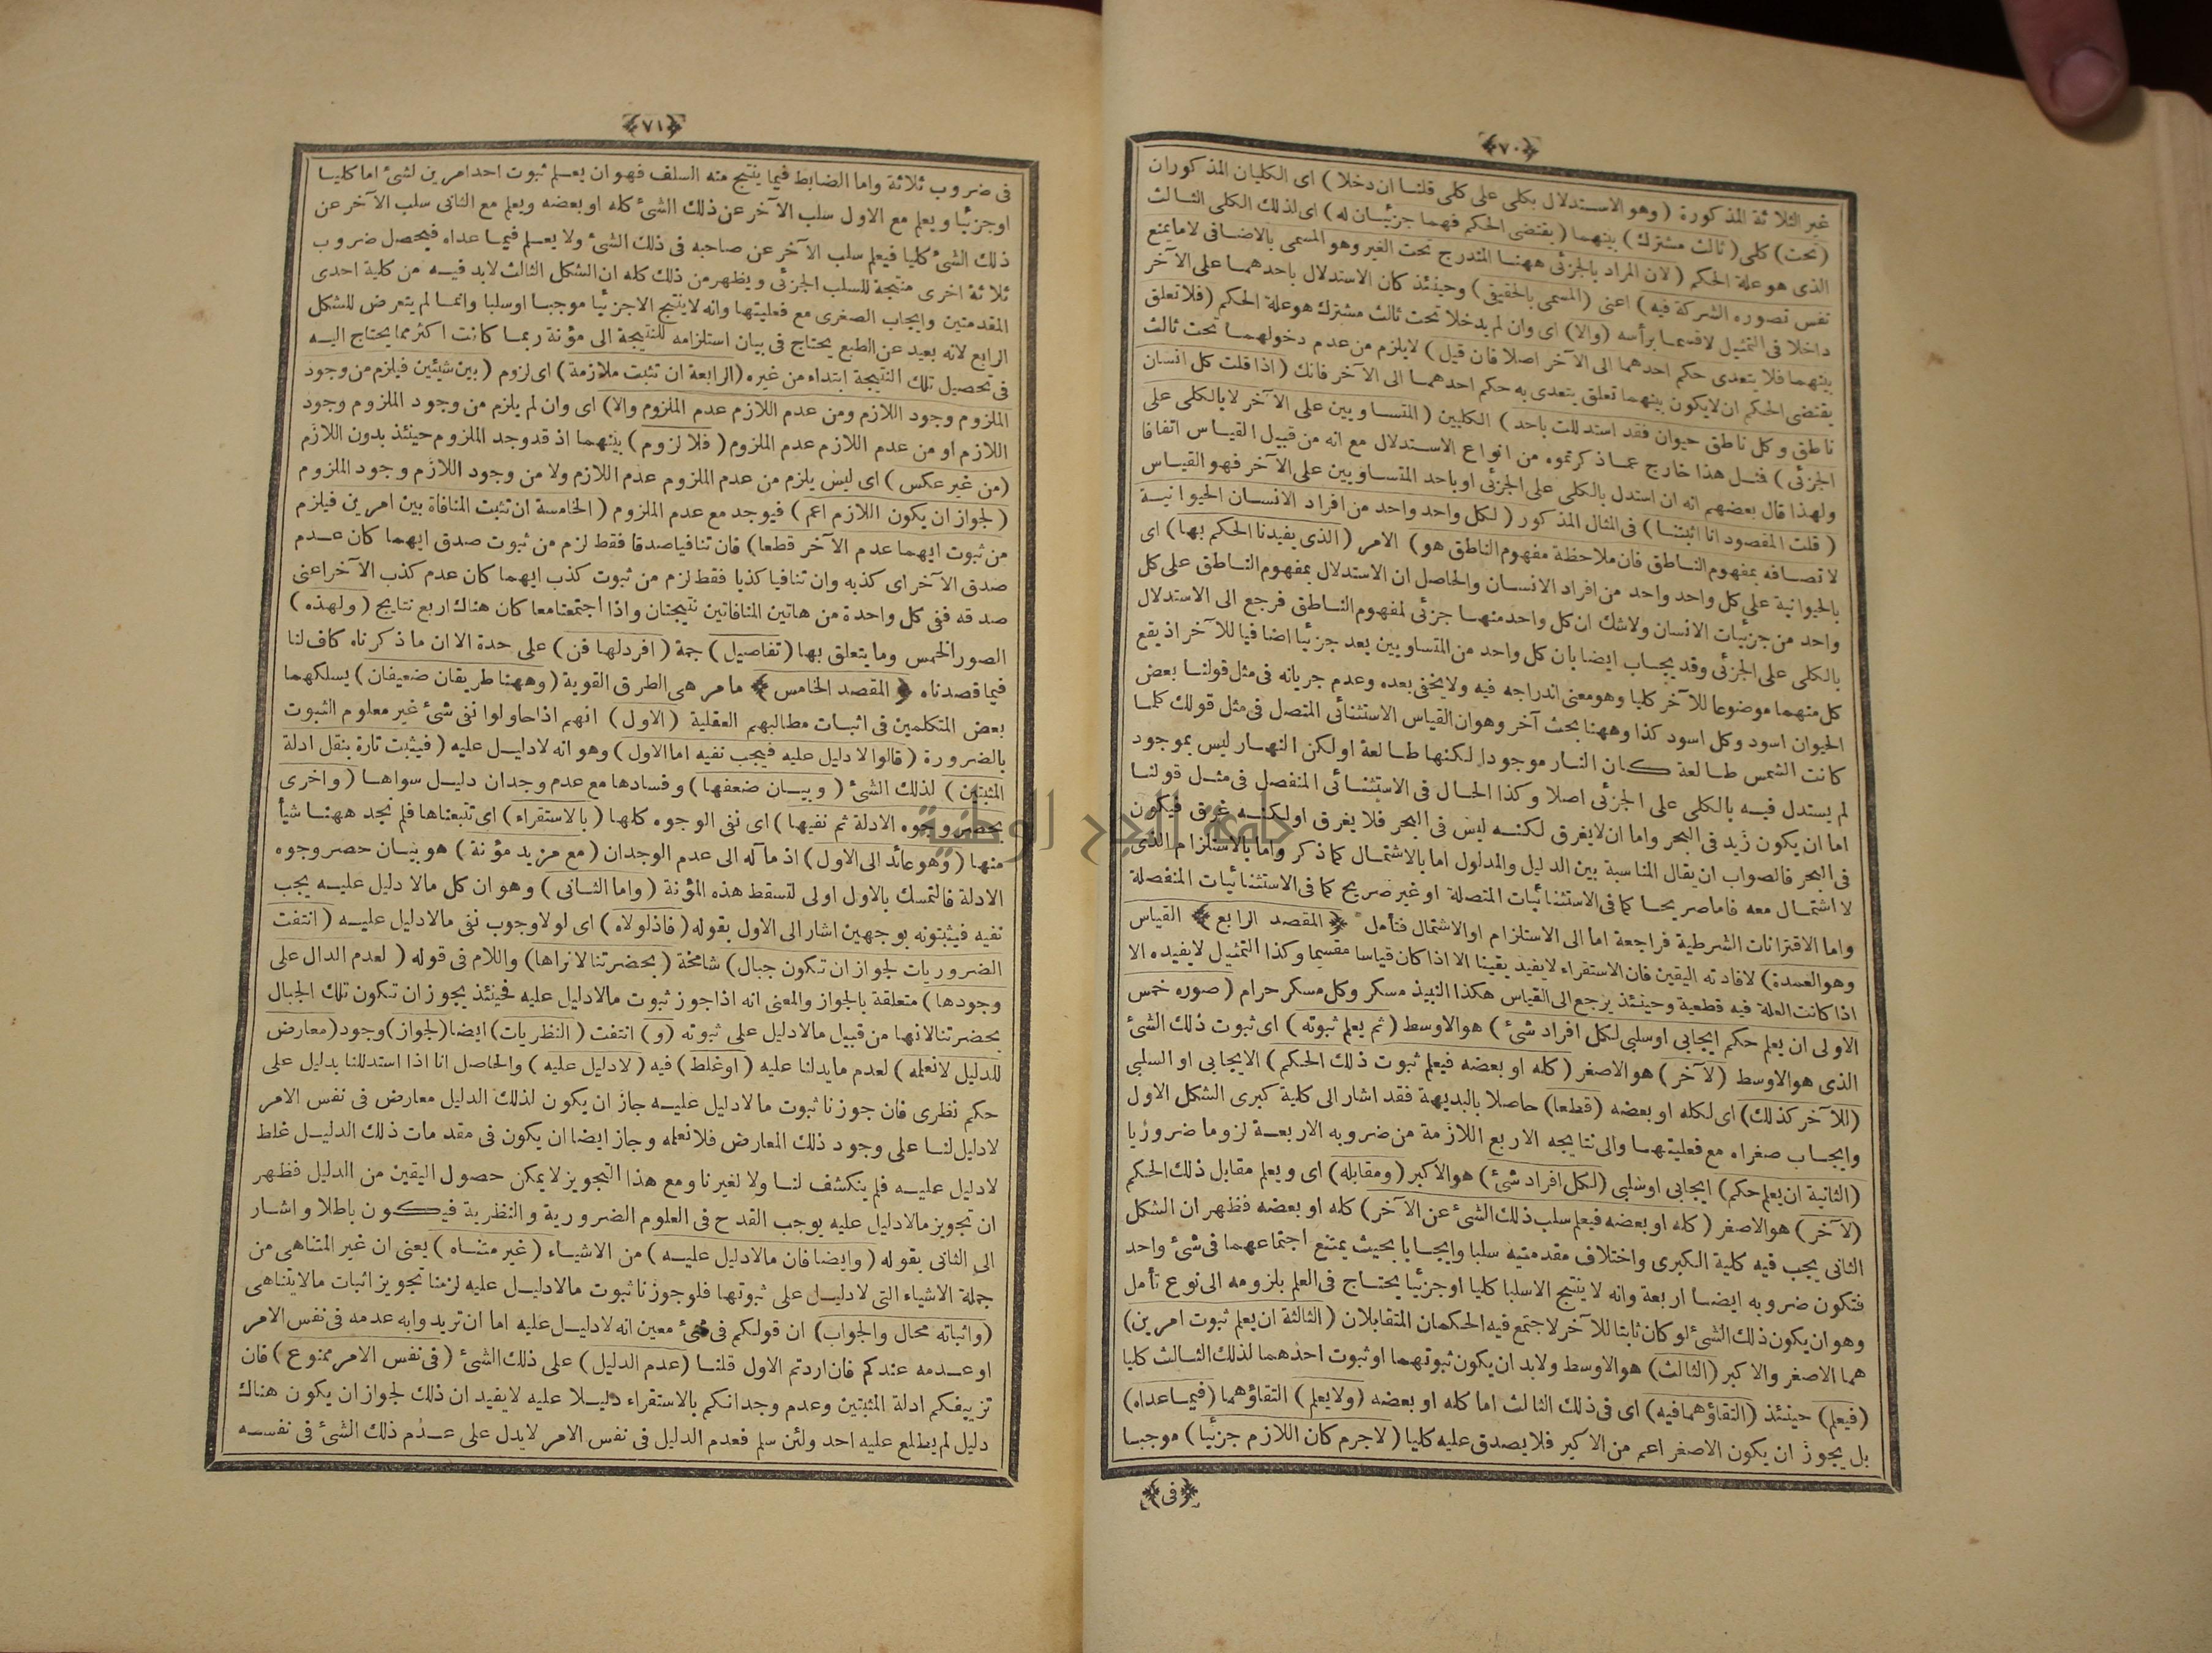 ﴿٧٠﴾
غير الثلاثة المذكورة ( وهو الاستدلال بكلى على كلى قلنا ان دخلا ) اى الكليان المذكوران
(تحت) كلى ( ثالث مشترك ) بينهما ( يقتضى الحكم فهما جزئيان له ) اى لذلك الكلى الثالث
الذى هو علة الحكم ( لان المراد بالجزئى ههنا المندرج تحت الغير وهو المسمى بالاضافى لا ما يمنع
نفس تصوره الشركة فيه ) اعنى ( المسمى بالحقيقى ) وحينئذ كان الاستدلال باحدهما على الآخر
داخلا فى التمثيل لا قسما برأسه ( والا ) اى وان لم يدخلا تحت ثالث مشترك هو علة الحكم ( فلا تعلق
بينهما فلا يتعدى حكم احدهما الى الآخر اصلا فان قيل ) لا يلزم من عدم دخولهما تحت ثالث
يقتضى الحكم ان لا يكون بينهما تعلق يتعدى به حكم احدهما الى الآخر فانك ( اذا قلت كل انسان
ناطق وكل ناطق حيوان فقد استدللت باحد ) الكليين ( المتساويين على الآخر لا بالكلى على
الجزئى ) فثل هذا خارج عما ذكرتموه من انواع الاستدلال مع انه من قبيل القياس اتفاقا
ولهذا قال بعضهم انه ان استدل بالكلى على الجزئى او باحد المتساويين على الآخر فهو القياس
( قلت المقصود انا اثبتنا ) فى المثال المذكور ( لكل واحد واحد من افراد الانسان الحيوانية
لاتصافه بمفهوم الناطق فان ملاحظة مفهوم الناطق هو ) الامر ( الذى يفيدنا الحكم بها ) اى
بالحيوانية على كل واحد واحد من افراد الانسان والحاصل ان الاستدلال بمفهوم الناطق على كل
واحد من جزئيات الانسان ولا شك ان كل واحد منها جزئى لمفهوم الناطق فرجع الى الاستدلال
بالكلى على الجزئى وقد يجاب ايضا بان كل واحد من المتساويين يعد جزئيا اضافيا للآخر اذ يقع
كل منهما موضوعا للآخر كليا وهو معنى اندراجه فيه ولا يخفى بعده وعدم جريانه فى مثل قولنا بعض
الحيوان اسود وكل اسود كذا وههنا بحث آخر وهو ان القياس الاستثنائى المتصل فى مثل قولك كلما
كانت الشمس طالعة كان النار موجودا لكنها طالعة او لكن النهار ليس بموجود
لم يستدل فيه بالكلى على الجزئى اصلا وكذا الحال فى الاستثنائى المنفصل فى مثل قولنا
اما ان يكون زيد فى البحر واما ان لا يغرق لكنه ليس فى البحر فلا يغرق او لكنه غرق فيكون
فى البحر فالصواب ان يقال المناسبة بين الدليل والمدلول اما بالاشتمال كما ذكر واما بالاستلزام الذى
لا اشتمال معه فاما صريحا كما فى الاستثنائيات المتصلة او غير صريح كما فى الاستثنائيات المنفصلة
واما الاقترانات الشرطية فراجعة اما الى الاستلزام او الاشتمال فتأمل ﴿ المقصد الرابع ﴾ القياس
وهو العمدة ) لافادته اليقين فان الاستقراء لا يفيد يقينا الا اذا كان قياسا مقسيما وكذا التمثيل لا يفيده الا
اذا كانت العلة فيه قطعية وحينئذ يرجع الى القياس هكذا النبيذ مسكر وكل مسكر حرام ( صوره خمس
الاولى ان يعلم حكم ايجابى او سلبى لكل افراد شئ ) هو الاوسط ( ثم يعلم ثبوته ) اى ثبوت ذلك الشئ
الذى هو الاوسط ( لآخر ) هو الاصغر ( كله او بعضه فيعلم ثبوت ذلك الحكم ) الايجابى او السلبى
(للآخر كذلك) اى لكله او بعضه ( قطعا ) حاصلا بالبديهة فقد اشار الى كلية كبرى الشكل الاول
وايجاب صغراه مع فعليتهما والى نتايجه الاربع اللازمة من ضروبه الاربعة لزوما ضروريا
(الثانية ان يعلم حكم) ايجابى او سلبى (لكل افراد شئ) هو الاكبر ( ومقابله ) اى ويعلم مقابل ذلك الحكم
(لآخر) هو الاصغر ( كله او بعضه فيعلم سلب ذلك الشئ عن الآخر ) كله او بعضه فظهر ان الشكل
الثانى يجب فيه كلية الكبرى واختلاف مقدمتيه سلبا وايجابا بحيث يمتنع اجتماعهما فى شئ واحد
فتكون ضروبه ايضا اربعة وانه لا ينتج الا سلبا كليا او جزئيا يحتاج فى العلم بلزومه الى نوع تأمل
وهو ان يكون ذلك الشئ لو كان ثابتا للآخر لاجتمع فيه الحكمان المتقابلان ( الثالثة ان يعلم ثبوت امرين )
هما الاصغر والاكبر ( الثالث ) هو الاوسط ولابد ان يكون ثبوتهما او ثبوت احدهما لذلك الثالث كليا
(فيعلم) حينئذ ( التقاؤهما فيه ) اى فى ذلك الثالث اما كله او بعضه ( ولا يعلم ) التقاؤهما ( فيما عداه )
بل يجوز ان يكون الاصغر اعم من الاكبر فلا يصدق عليه كليا ( لا جرم كان اللازم جزئيا ) موجبا
﴿فى﴾
﴿٧١﴾
فى ضروب ثلاثة واما الضابط فيما ينتج منه السلف فهو ان يعلم ثبوت احد امرين لشئ اما كليا
او جزئيا ويعلم مع الاول سلب الآخر عن ذلك الشئ كله او بعضه ويعلم مع الثانى سلب الآخر عن
ذلك الشئ كليا فيعلم سلب الآخر عن صاحبه فى ذلك الشئ ولا يعلم فيما عداه فيحصل ضروب
ثلاثة اخرى منتجة للسلب الجزئى ويظهر من ذلك كله ان الشكل الثالث لابد فيه من كلية احدى
المقدمتين وايجاب الصغرى مع فعليتها وانه لا ينتج الا جزئيا موجبا او سلبا وانما لم يتعرض للشكل
الرابع لانه بعيد عن الطبع يحتاج فى بيان استلزامه للنتيجة الى مؤنة ربما كانت اكثر مما يحتاج اليه
فى تحصيل تلك النتيجة ابتداء من غيره ( الرابعة ان تثبت ملازمة ) اى لزوم ( بين شيئين فيلزم من وجود
الملزوم وجود اللازم ومن عدم اللازم عدم الملزوم والا ) اى وان لم يلزم من وجود الملزوم وجود
اللازم او من عدم اللازم عدم الملزوم ( فلا لزوم ) بينهما اذ قد وجد الملزوم حينئذ بدون اللازم
(من غير عكس ) اى ليس يلزم من عدم الملزوم عدم اللازم ولا من وجود اللازم وجود الملزوم
( لجواز ان يكون اللازم اعم ) فيوجد مع عدم الملزوم ( الخامسة ان تثبت المنافاة بين امرين فيلزم
من ثبوت ايهما عدم الآخر قطعا ) فان تنافيا صدقا فقط لزم من ثبوت صدق ايهما كان عدم
صدق الآخر اى كذبه وان تنافيا كذبا فقط لزم من ثبوت كذب ايهما كان عدم كذب الآخر اعنى
صدقه ففى كل واحدة من هاتين المنافاتين نتيجتان واذا اجتمعتا معا كان هناك اربع نتايج ( ولهذه )
الصور الخمس وما يتعلق بها ( تفاصيل ) جمة ( افرد لها فن ) على حدة الا ان ما ذكرناه كاف لنا
فيما قصدناه ﴿ المقصد الخامس ﴾ ما مر هى الطرق القوية ( وههنا طريقان ضعيفان ) يسلكهما
بعض المتكلمين فى اثبات مطالبهم العقلية ( الاول ) انهم اذا حاولوا نفى شئ غير معلوم الثبوت
بالضرورة ( قالوا لا دليل عليه فيجب نفيه اما الاول ) وهو انه لا دليل عليه ( فيثبت تارة بنقل ادلة
المثبتين ) لذلك الشئ ( وبيان ضعفها ) وفسادها مع عدم وجدان دليل سواها ( واخرى
بحصر وجوه الادلة ثم نفيها ) اى نفى الوجوه كلها ( بالاستقراء ) اى تتبعناها فلم نجد ههنا شيأ
منها ( وهو عائد الى الاول ) اذ مآله الى عدم الوجدان ( مع مزيد مؤنة ) هو بيان حصر وجوه
الادلة فالتمسك بالاول اولى لتسقط هذه المؤنة ( واما الثانى ) وهو ان كل ما لا دليل عليه يجب
نفيه فيثبتونه بوجهين اشار الى الاول بقوله ( فاذ لولاه ) اى لولا وجوب نفى ما لا دليل عليه ( انتفت
الضروريات لجواز ان تكون جبال ) شامخة ( بحضرتنا لا نراها ) واللام فى قوله ( لعدم الدال على
وجودها ) متعلقة بالجواز والمعنى انه اذا جوز ثبوت ما لا دليل عليه فحينئذ يجوز ان تكون تلك الجبال
بحضرتنا لانها من قبيل ما لا دليل على ثبوته ( و ) انتفت ( النظريات ) ايضا ( لجواز ) وجود ( معارض
للدليل لا نعلمه ) لعدم ما يدلنا عليه ( او غلط ) فيه ( لا دليل عليه ) والحاصل انا اذا استدللنا بدليل على
حكم نظرى فان جوزنا ثبوت ما لا دليل عليه جاز ان يكون لذلك الدليل معارض فى نفس الامر
لا دليل لنا على وجود ذلك المعارض فلا نعلمه وجاز ايضا ان يكون فى مقدمات ذلك الدليل غلط
لا دليل عليه فلم ينكشف لنا ولا لغيرنا ومع هذا التجويز لا يمكن حصول اليقين من الدليل فظهر
ان تجويز ما لا دليل عليه يوجب القدح فى العلوم الضرورية والنظرية فيكون باطلا واشار
الى الثانى بقوله ( وايضا فان ما لا دليل عليه ) من الاشياء ( غير متناه ) يعنى ان غير المتناهى من
جملة الاشياء التى لا دليل على ثبوتها فلو جوزنا ثبوت ما لا دليل عليه لزمنا تجويز اثبات ما لا يتناهى
(واثباته محال والجواب) ان قولكم فى شئ معين انه لا دليل عليه اما ان تريدوا به عدمه فى نفس الامر
او عدمه عندكم فان اردتم الاول قلنا ( عدم الدليل ) على ذلك الشئ ( فى نفس الامر ممنوع ) فان
تزييفكم ادلة المثبتين وعدم وجدانكم بالاستقراء دليلا عليه لا يفيد ان ذلك لجواز ان يكون هناك
دليل لم يطلع عليه احد ولئن سلم فعدم الدليل فى نفس الامر لا يدل على عدم ذلك الشئ فى نفسه